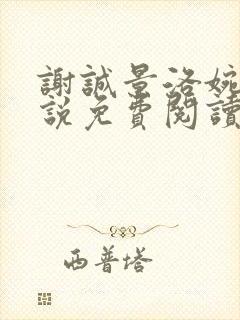 謝誠景洛婉
説免費閱讀
西普塔